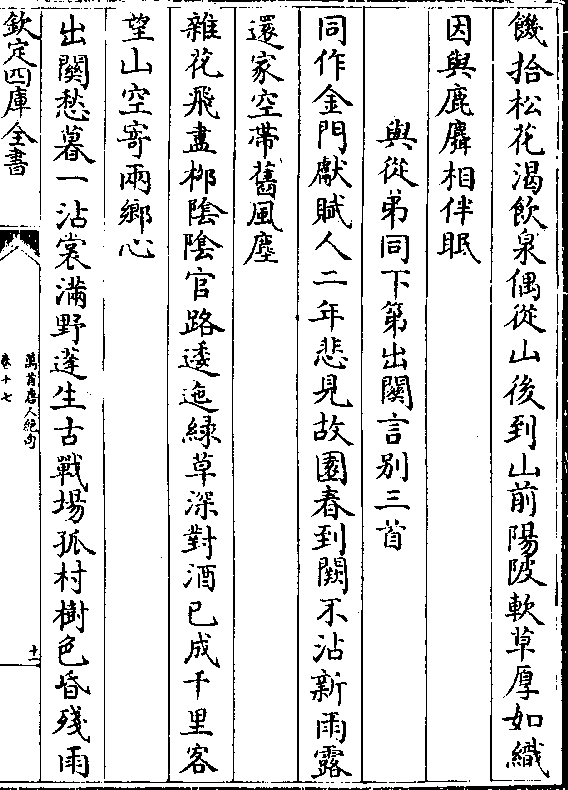 饑拾松花渴飲泉偶從山後到山前陽陂軟草厚如織
因與鹿麛相伴眠
與從弟同下第出關言别三首
同作金門獻賦人二年悲見故園春到闕不沾新雨露
還家空帶舊風塵
雜花飛盡栁隂隂官路逶迤緑草深對酒已成千里客
望山空寄兩鄉心
出關愁暮一沾裳滿野蓬生古戰場孤村樹色昏殘雨
欽定四庫全書
萬首唐人絶句
卷十七
十一